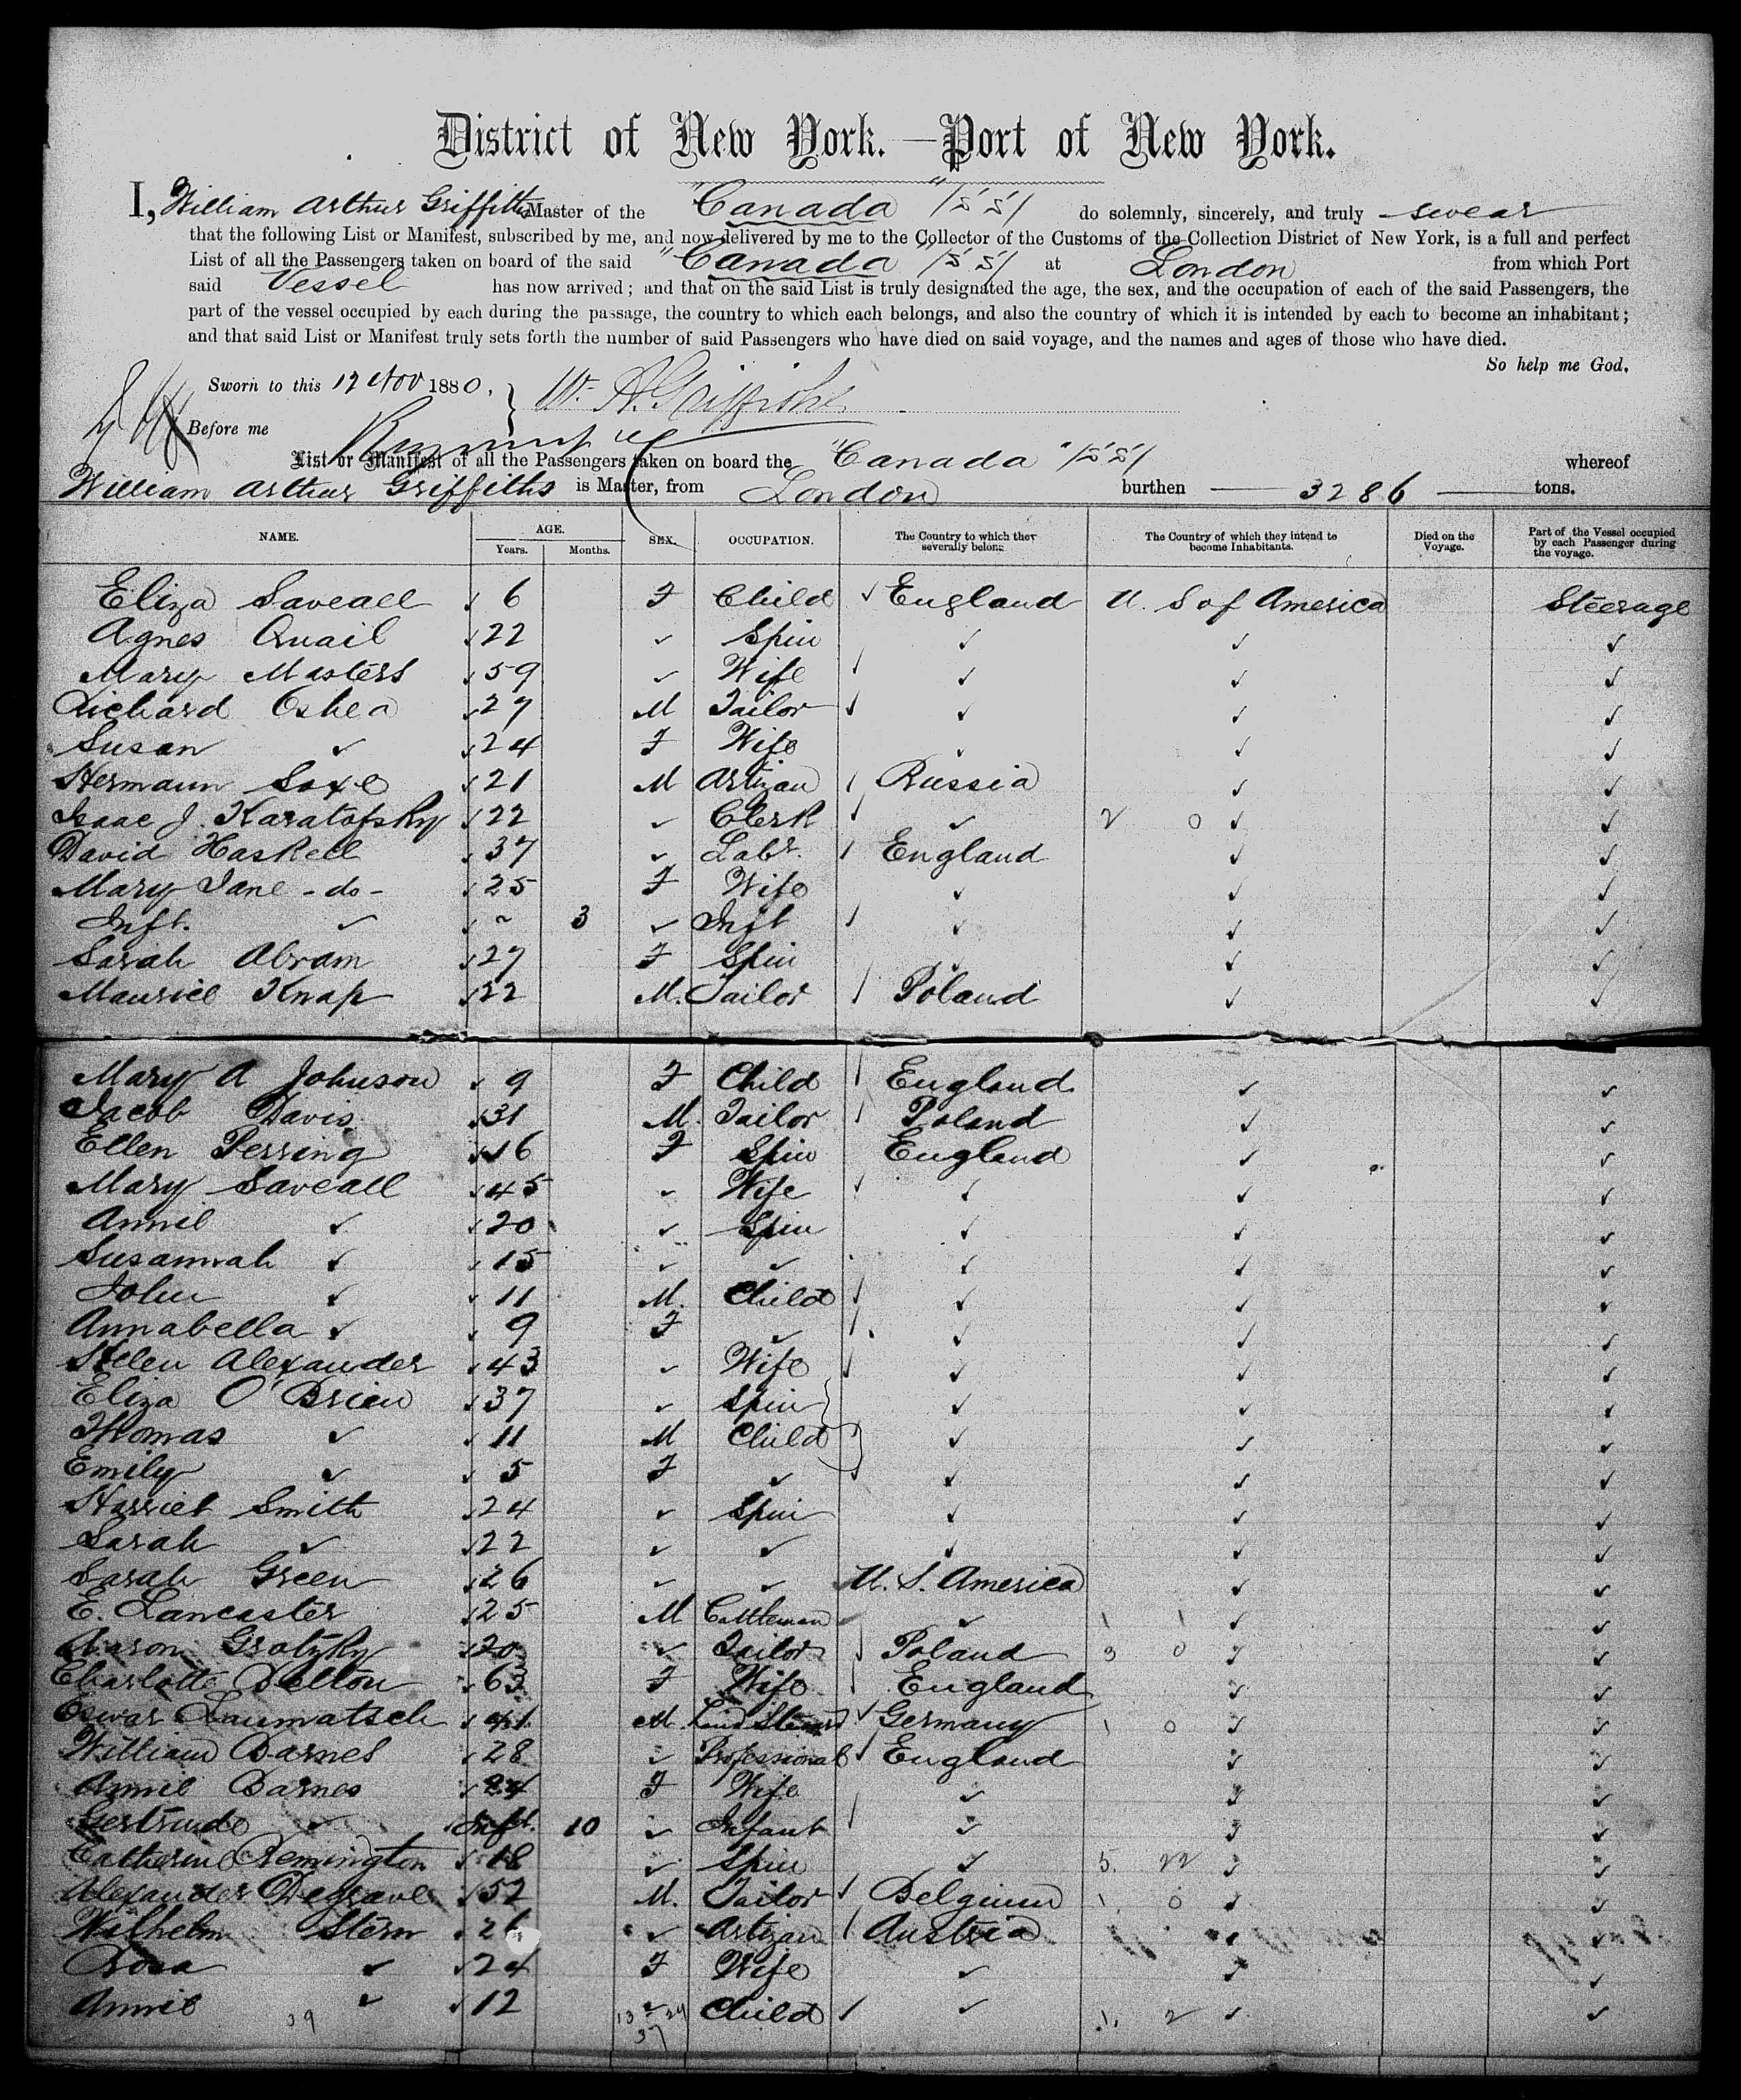 District of New York.—Port of New York.
I, William Arthur Griffiths Master of the "Canada" /S.S/ do solemnly, sincerely, and truly swear
that the following List or Manifest, subscribed by me, and now delivered by me to the Collector of the Customs of the Collection District of New York, is a full and perfect
List of all the Passengers taken on board of the said "Canada" /S.S/ at London from which Port
said Vessel has now arrived; and that on the said List is truly designated the age, the sex, and the occupation of each of the said Passengers, the
part of the vessel occupied by each during the passage, the country to which each belongs, and also the country of which it is intended by each to become an inhabitant;
and that said List or Manifest truly sets forth the number of said Passengers who have died on said voyage, and the names and ages of those who have died.
So help me God.
Sworn to this 17 Nov 1880. W. A. Griffiths
Before me
List or Manifest of all the Passengers taken on board the "Canada" /S.S/ whereof
William Arthur Griffiths is Master, from London burthen 3286 tons.
NAME. AGE. Years. Months. SEX. OCCUPATION. The Country to which they severally belong. The Country of which they intend to become Inhabitants. Died on the Voyage. Part of the Vessel occupied by each Passenger during the voyage.
Eliza Saveall 6 F Child England U. S of America Steerage
Agnes Quail 22 ✓ Spin ✓ ✓ ✓
Mary Masters 59 ✓ Wife ✓ ✓ ✓
Richard Oshea 27 M Tailor ✓ ✓ ✓
Susan ✓ 24 F Wife ✓ ✓ ✓
Hermann Saxe 21 M Artizan Russia ✓ ✓
Isaac J. Karatofsky 22 ✓ Clerk ✓ 2 0 ✓ ✓
David Haskell 37 ✓ Labr. England ✓ ✓
Mary Jane -do- 25 F Wife ✓ ✓ ✓
Inft. ✓ ~ 3 ✓ Inft ✓ ✓ ✓
Sarah Abram 27 F Spin ✓ ✓ ✓
Maurice Knap 22 M. Tailor Poland ✓ ✓
Mary A Johnson 9 F Child England ✓ ✓
Jacob Davis 31 M. Tailor Poland ✓ ✓
Ellen Perring 16 F Spin England ✓ ✓
Mary Saveall 45 ✓ Wife ✓ ✓ ✓
Annie ✓ 20 ✓ Spin ✓ ✓ ✓
Susannah ✓ 15 ✓ ✓ ✓ ✓ ✓
John ✓ 11 M. Child ✓ ✓ ✓
Annabella ✓ 9 F ✓ ✓ ✓ ✓
Helen Alexander 43 ✓ Wife ✓ ✓ ✓
Eliza O'Brien 37 ✓ Spin ✓ ✓ ✓
Thomas ✓ 11 M Child ✓ ✓ ✓
Emily ✓ 5 F ✓ ✓ ✓ ✓
Harriet Smith 24 ✓ Spin ✓ ✓ ✓
Sarah ✓ 22 ✓ ✓ ✓ ✓ ✓
Sarah Green 26 ✓ ✓ U. S. America ✓ ✓
E. Lancaster 25 M Cattleman ✓ 1 1 ✓ ✓
Aaron Grotzky 20 ✓ Tailor Poland 3 0 ✓ ✓
Charlotte Delton 63 F Wife England ✓ ✓
Oswar Laumatsch 41 M. Land Steward Germany 1 0 ✓ ✓
William Barnes 28 ✓ Professional England ✓ ✓
Annie Barnes 24 F Wife ✓ ✓ ✓
Gertrude ✓ Inft. 10 ✓ Infant ✓ ✓ ✓
Catherine Remington 18 ✓ Spin ✓ 5. 22 ✓ ✓
Alexander Degrave 52 M. Tailor Belgium 1. 0 ✓ ✓
Wilhelm Stern 26 ✓ Artizan Austria ✓ ✓
Rosa ✓ 24 F Wife ✓ ✓ ✓
Annie ✓ 12 ✓ Child ✓ 1. 2 ✓ ✓
39 13 24
37